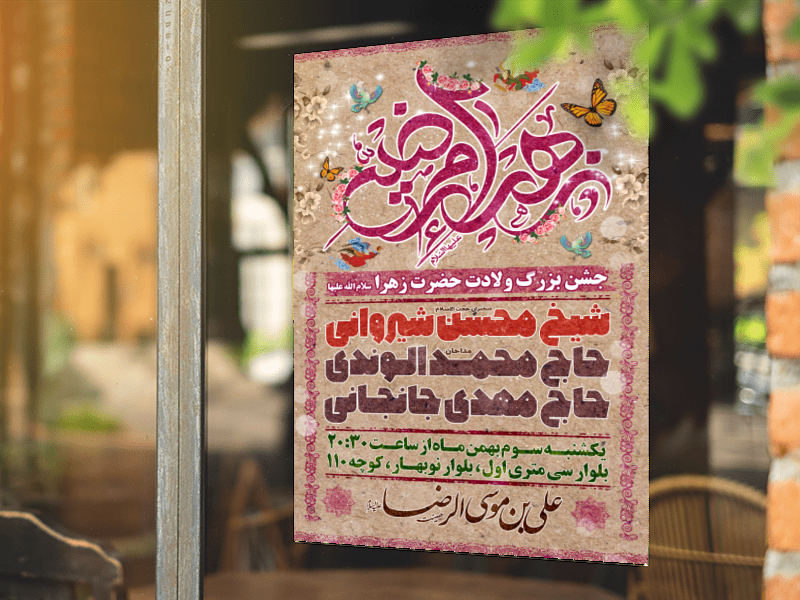 زهرا مرضیه
علیها السلام
جشن بزرگ ولادت حضرت زهرا سلام الله علیها
سخنران حجت الاسلام
شیخ محسن شیروانی
مداحان
حاج محمد الوندی
حاج مهدی جانجانی
یکشنبه سوم بهمن ماه از ساعت ۲۰:۳۰
بلوار سی متری اول، بلوار نوبهار، کوچه ۱۱۰
علی بن موسی الرضا